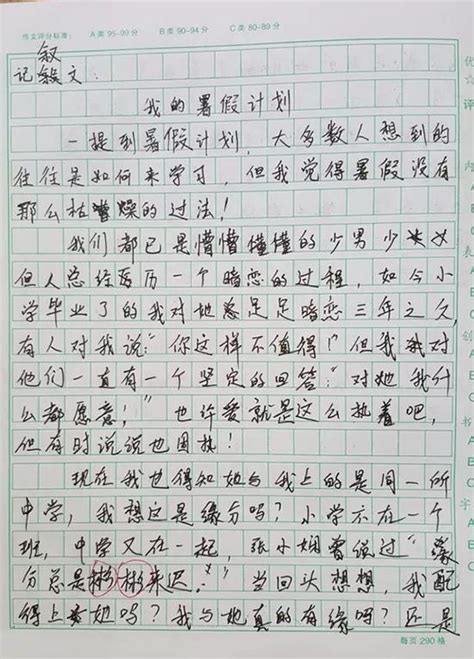 作文评分标准： A类95-99分 B类90-94分 C类80-89分
叙
记叙文：
我的暑假计划
一提到暑假计划，大多数人想到的
往往是如何来学习，但我觉得暑假没有
那么枯燥的过法！
我们都已是懵懵懂懂的少男少女
但人总经历一个暗恋的过程，如今小
学毕业了的我对她足足暗恋三年之久，
有人对我说：“你这样不值得！但我对
他们一直有一个坚定的回答：“对她我什
么都愿意！”也许爱就是这么执着吧，
但有时说说也固执！
现在我也得知她与我上的是同一所
中学，我想这是缘分吗？小学不在一个
班，中学又在一起，张小娴曾说过“缘
分总是彬彬来迟。”当回头想想，我配
得上她吗？我与她真的有缘吗？还是
每页 290 格
优
☆
评
内
表
创
书
字